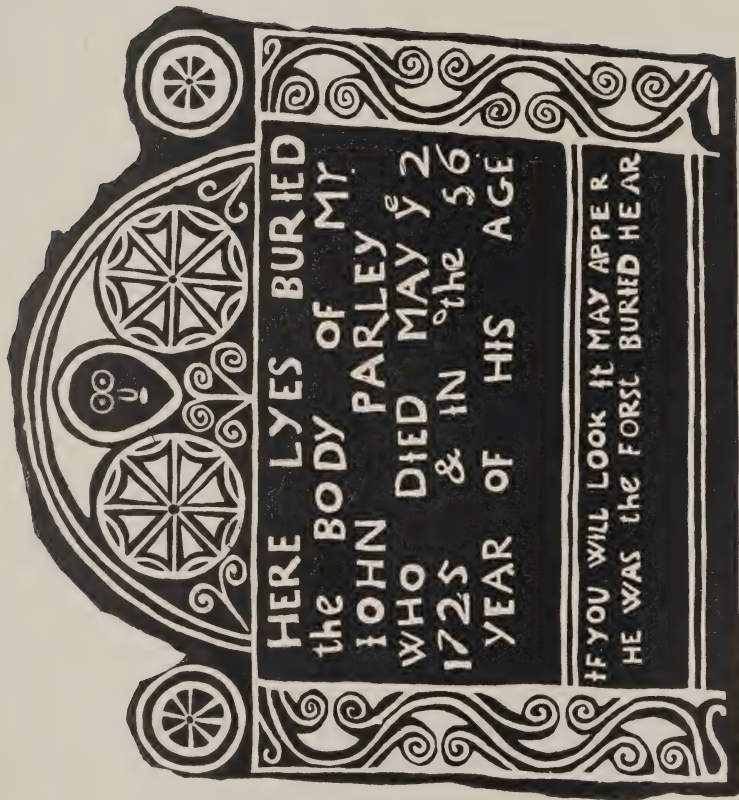 HERE LYES BURIED
the BODY OF Mr
IOHN PARLEY
WHO DIED MAY yᵉ 2
1725 & IN the 56
YEAR OF HIS AGE
IF YOU WILL LOOK it MAY APPER
HE WAS the FORST BURIED HEAR